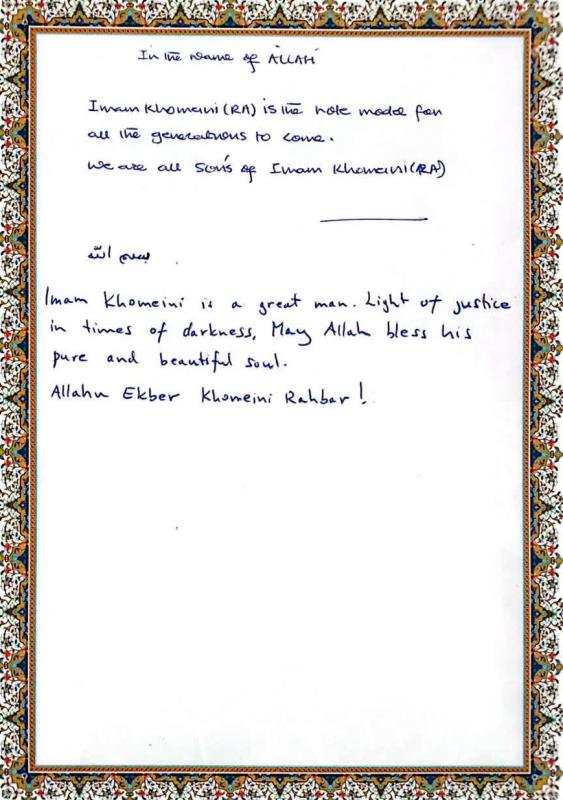 In the name of ALLAH
Imam Khomeini (RA) is the role model for
all the generations to come.
We are all sons of Imam Khomeini (RA)
بسم الله
Imam Khomeini is a great man. Light of justice
in times of darkness, May Allah bless his
pure and beautiful soul.
Allahu Ekber Khomeini Rahbar!